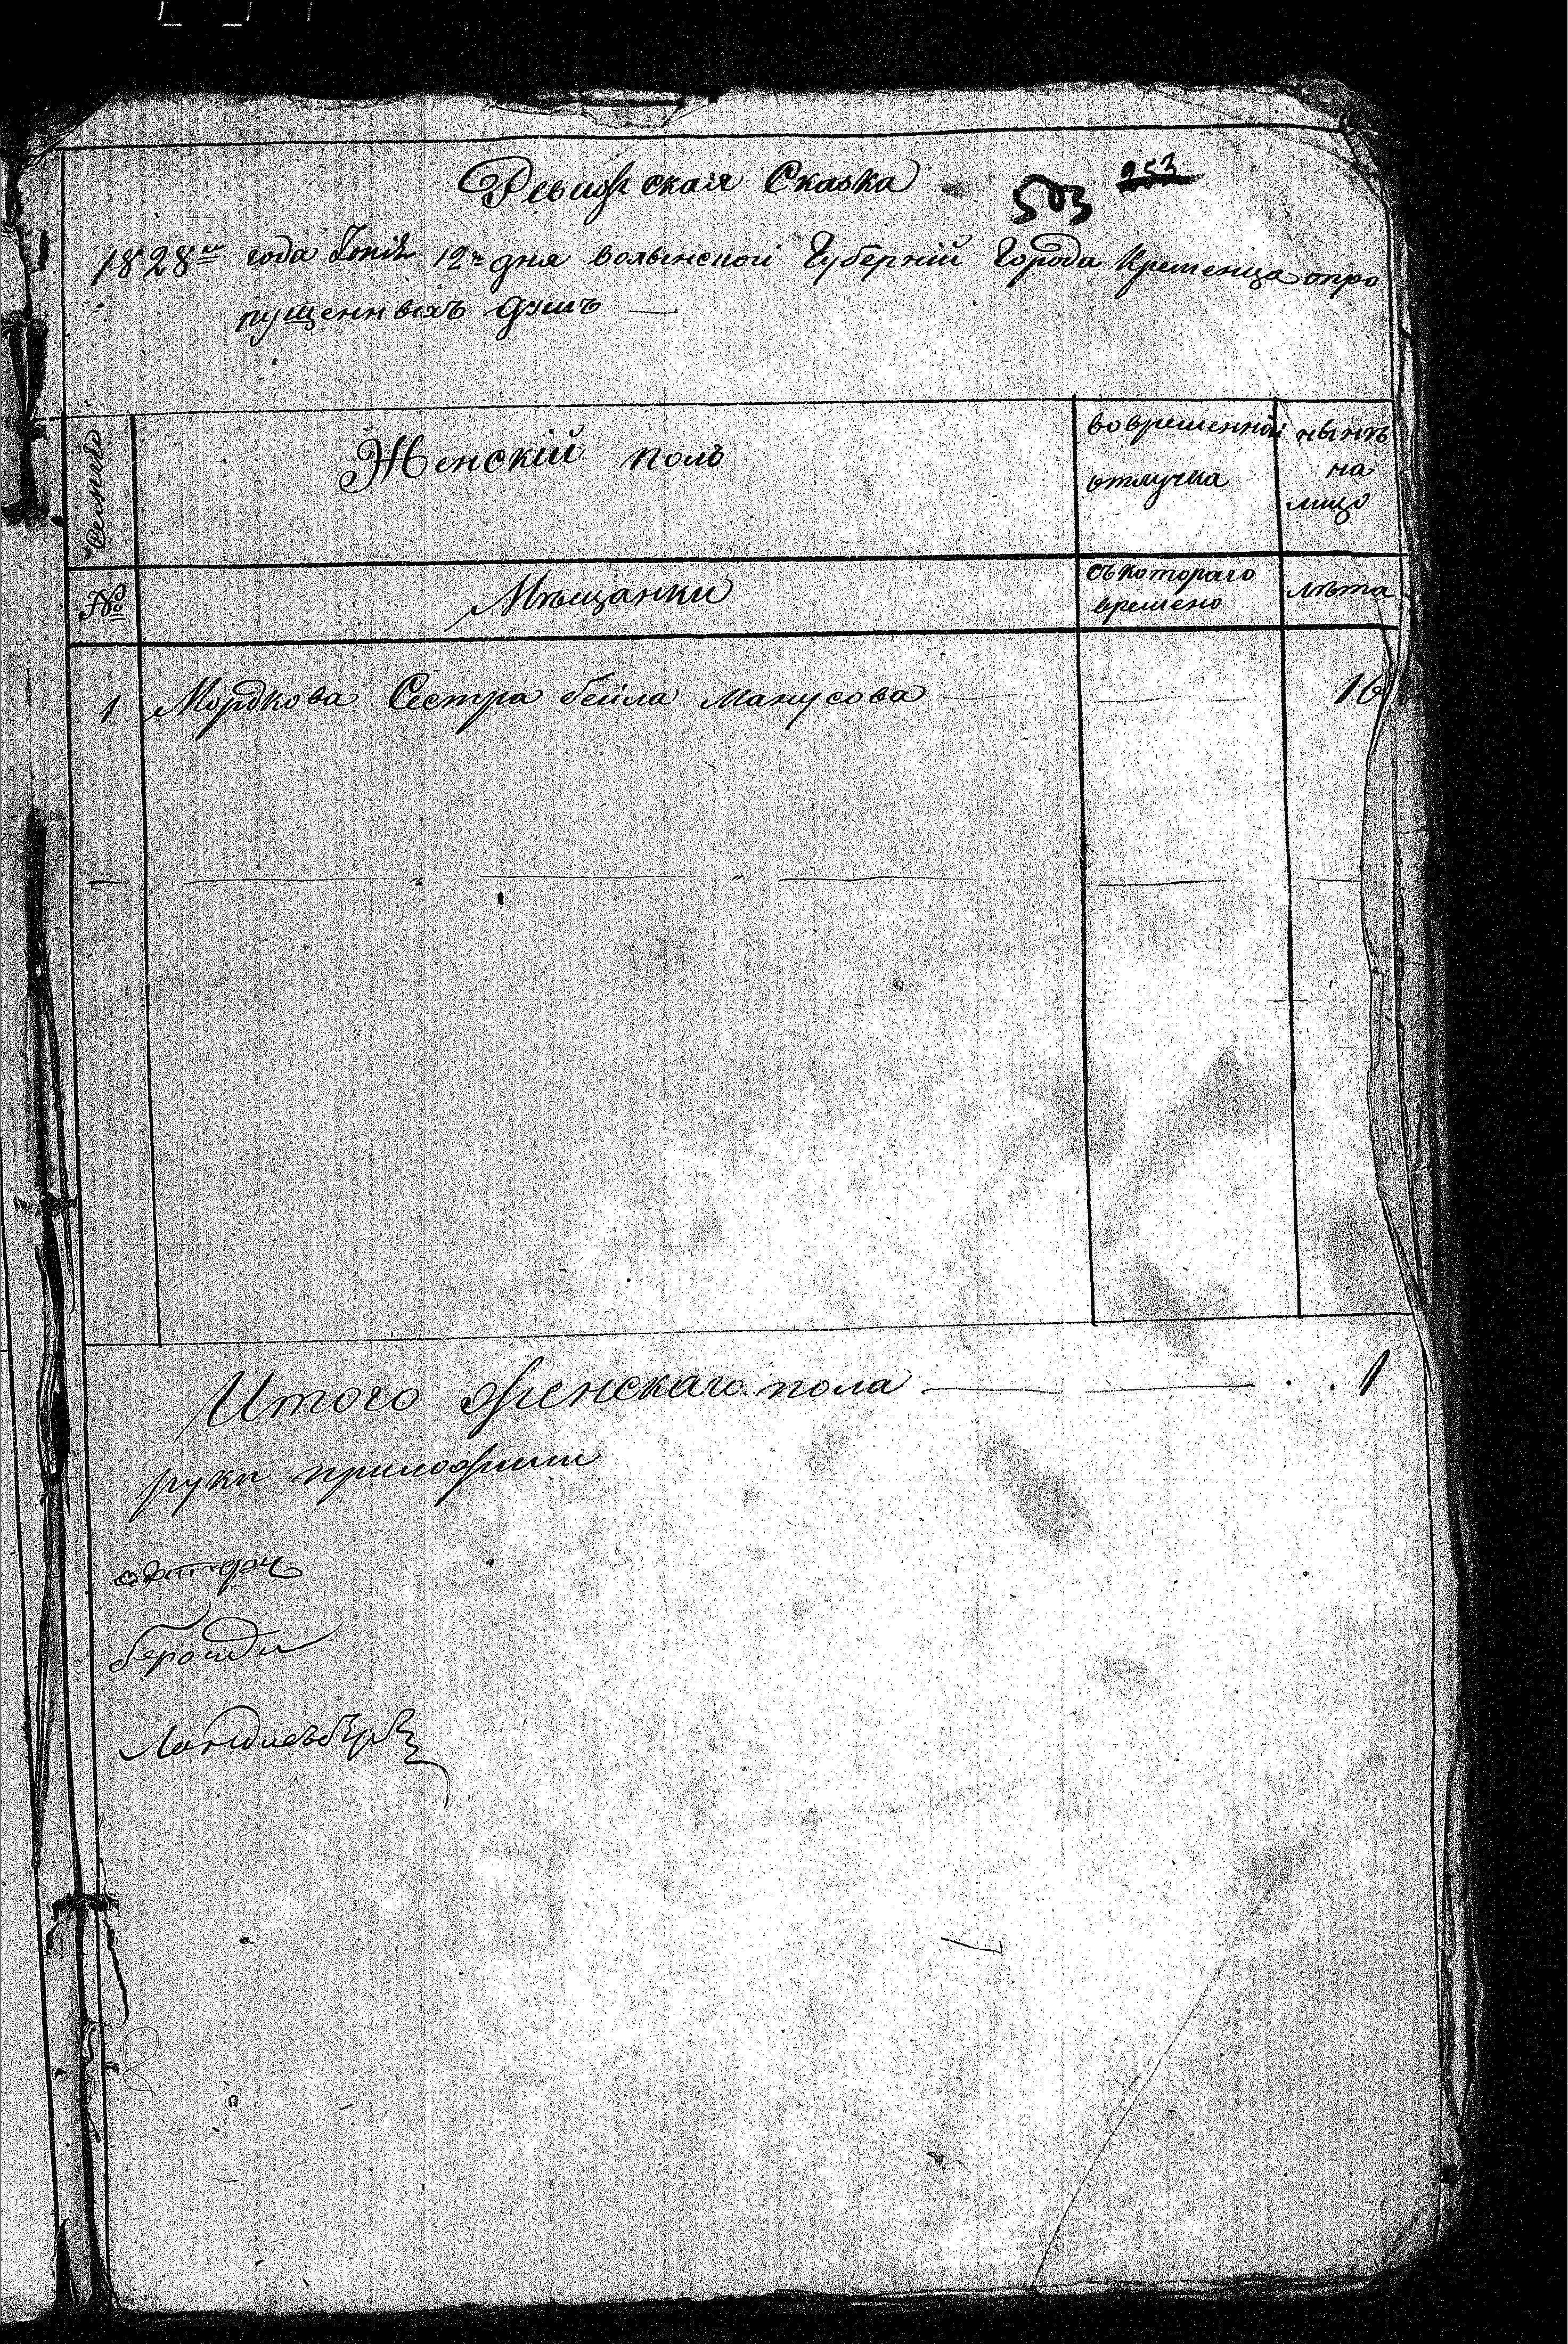 Ревизская Сказка
503 253
1828го года Іюнѣ 12го дня волынской Губерніи Города Кременца опро
пущенныхъ душъ
Семьѣ
Женскій полъ
во временной
отлучка
нынѣ
на
лицо
№
Мѣщанки
съ котораго
времено
лѣта
1 Мордкова Сестра бейла Манусова 16
Итого женскаго пола 1
руки приложили